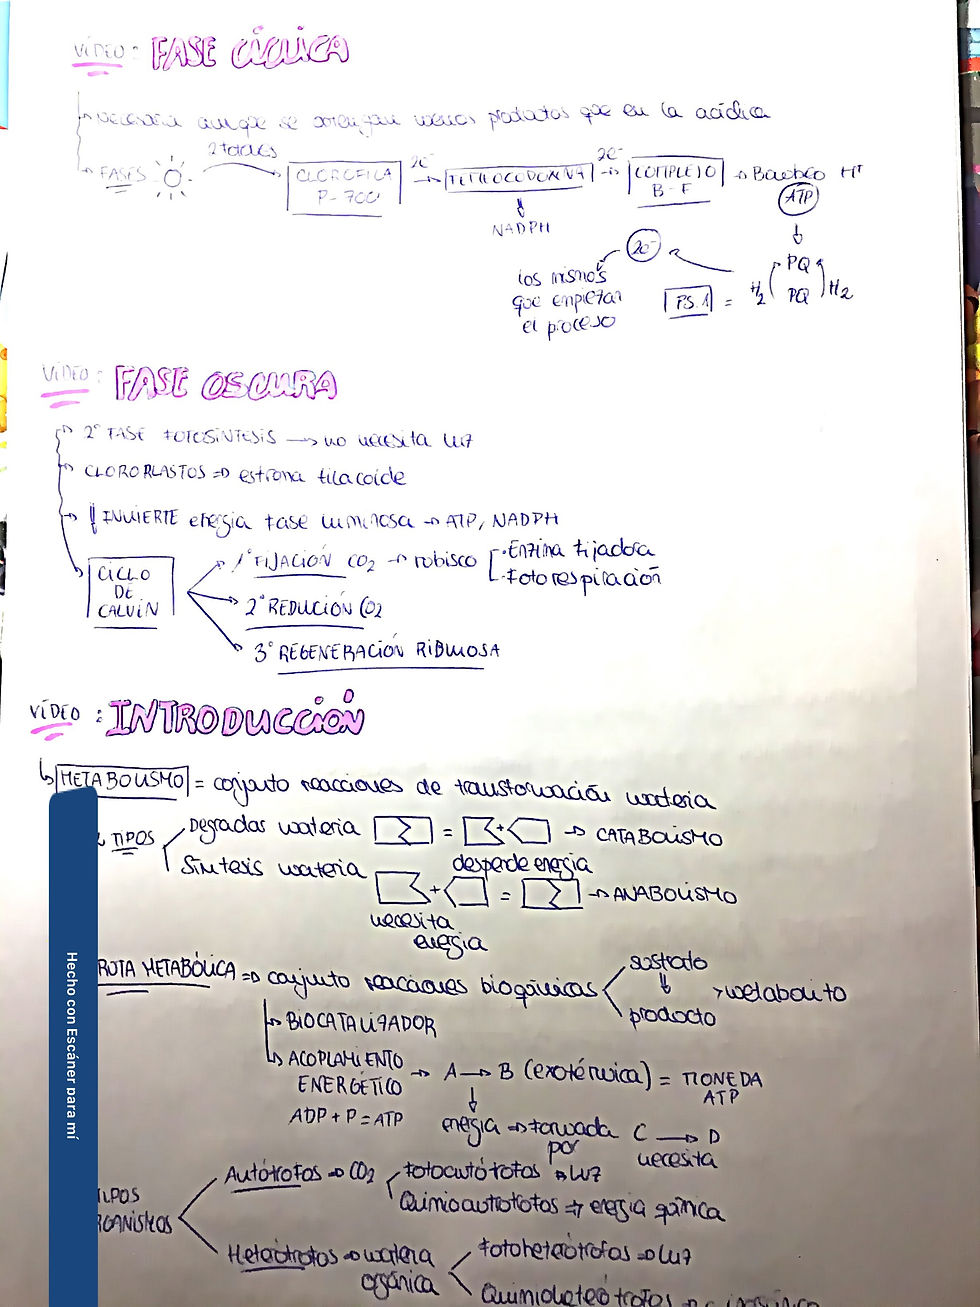 VÍDEO: FASE CÍCLICA
necesaria aunque se obtengan menos productos que en la acíclica
FASES
2 fotones
CLOROFILA
P-700
2e⁻
2e⁻
COMPLEJO
B-F
Bombeo H⁺
ATP
NADPH
2e⁻
los mismos
que empiezan
el proceso
PS.1 =
H₂
PQ
PQ
H₂
VÍDEO: FASE OSCURA
2º FASE FOTOSÍNTESIS → no necesita luz
CLOROPLASTOS ⇒ estroma tilacoide
INVIERTE energía fase luminosa → ATP, NADPH
CICLO
DE
CALVIN
1º FIJACIÓN CO₂ → rubisco
· Enzima fijadora
· Fotorespiración
2º REDUCIÓN CO₂
3º REGENERACIÓN RIBULOSA
VÍDEO: INTRODUCCIÓN
METABOLISMO = conjunto reacciones de transformación materia
TIPOS
Degradas materia = + → CATABOLISMO
desprende energía
Síntesis materia + = → ANABOLISMO
necesita
energía
RUTA METABÓLICA ⇒ conjunto reacciones bioquímicas
sustrato
↓
producto
→ metabolito
BIOCATALIZADOR
ACOPLAMIENTO
ENERGÉTICO
ADP + P = ATP
→ A → B (exotérmica) = MONEDA
ATP
energía → tomada
por
C → D
necesita
TIPOS
ORGANISMOS
Autótrofos → CO₂
Fotoautótrofos → luz
Quimioautotrofos → energía química
Heterótrofos → materia
orgánica
Fotoheterótrofos → luz
Quimioheterótrofos
Hecho con Escáner para mí